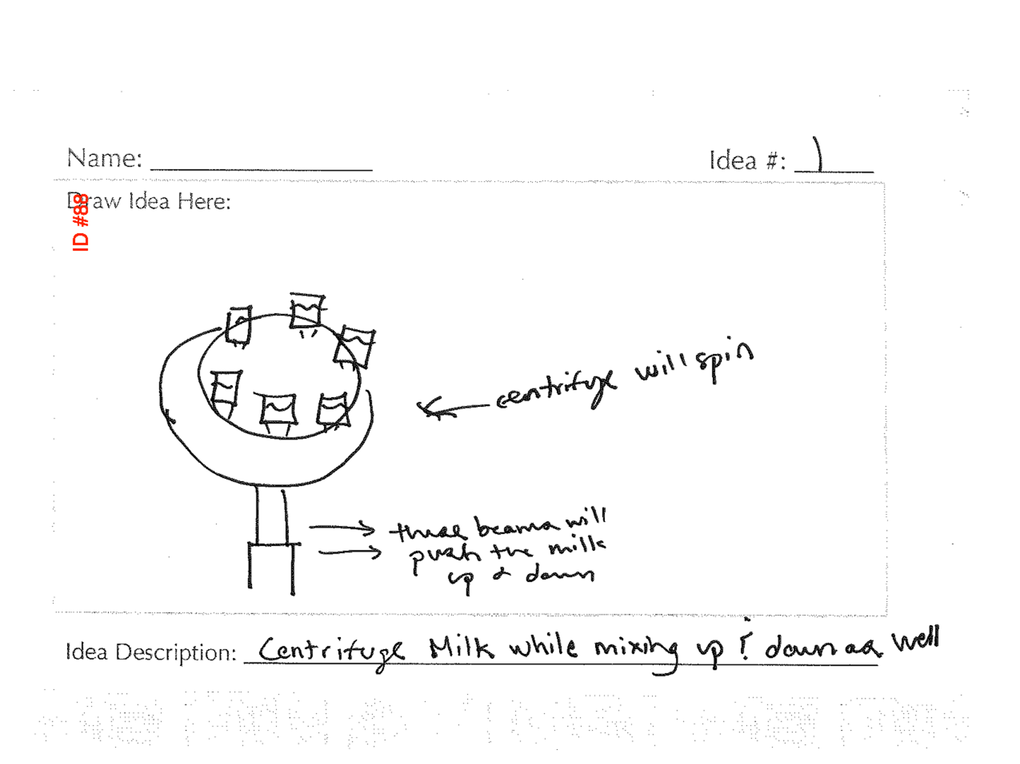 Name:
Idea #: 1
Draw Idea Here:
ID #88
centrifuge will spin
these beams will
push the milk
up & down
Idea Description: Centrifuge Milk while mixing up & down as well